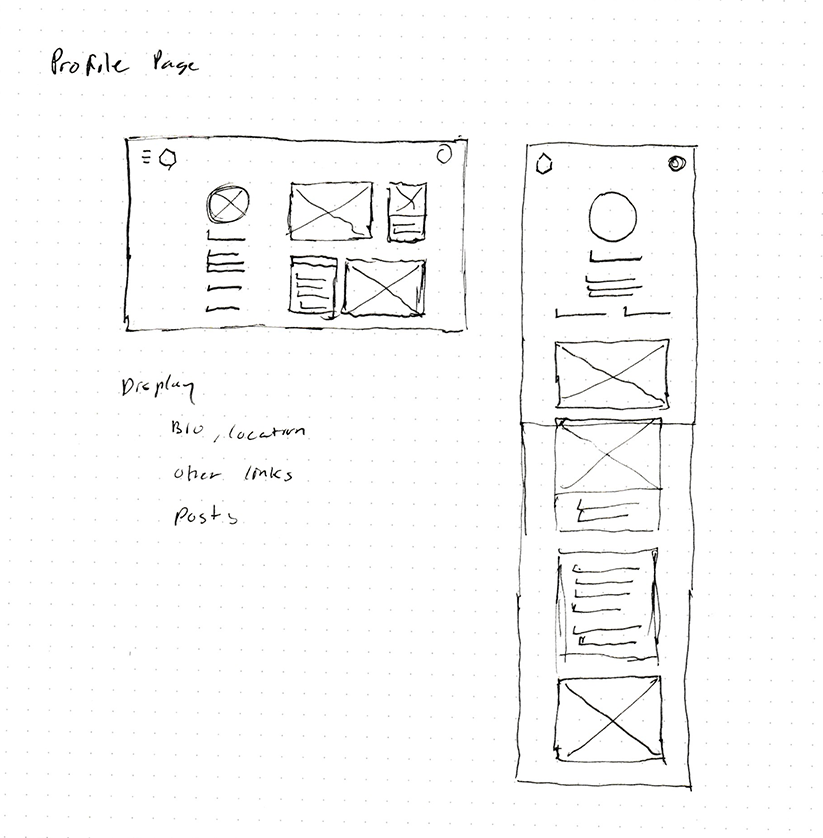 Profile Page
Display
Bio, location
other links
Posts